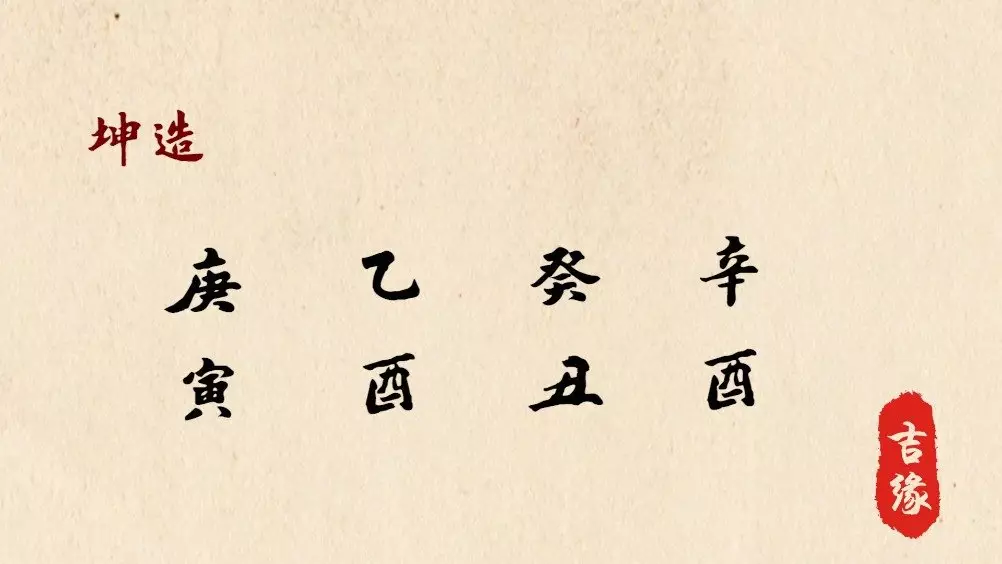 坤造
庚乙癸辛
寅酉丑酉
吉缘